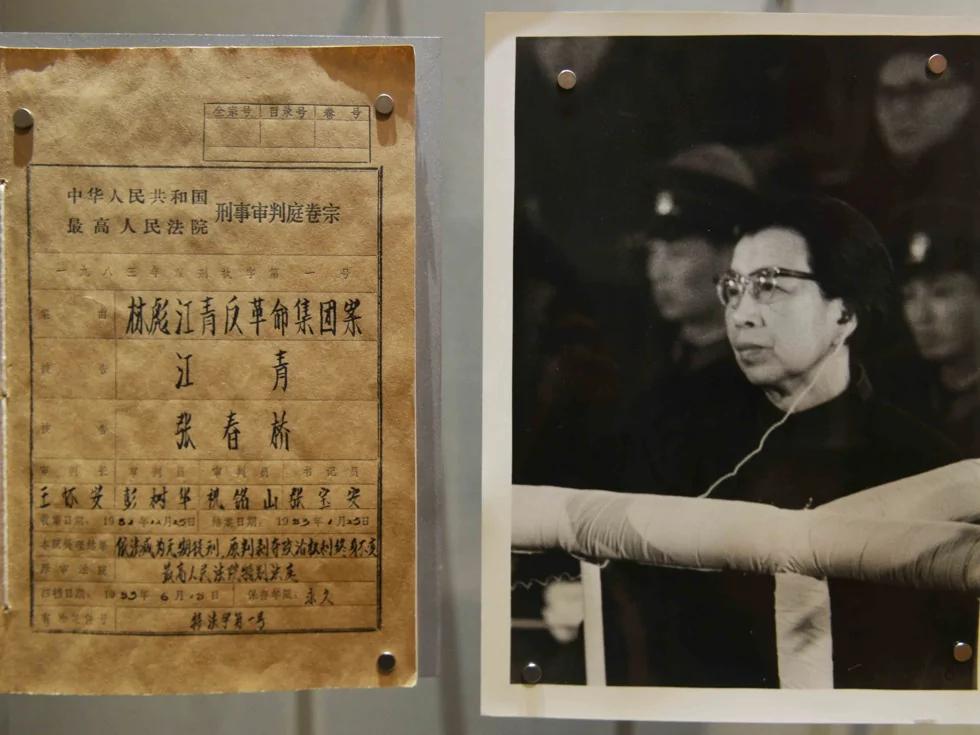 全宗号 目录号 卷号
中华人民共和国
最高人民法院
刑事审判庭卷宗
一九八三年度刑牧字第一号
案由 林彪江青反革命集团案
被告 江青
被告 张春桥
审判长 审判员 审判员 书记员
王怀安 彭树华 祝铭山 张宝安
收案日期: 1982年12月25日 结案日期: 1983年1月25日
本院处理结果 依法减为无期徒刑、原判剥夺政治权利终身不变
原审法院 最高人民法院特别法庭
归档日期: 1983年6月15日 保存年限: 永久
特法字第一号